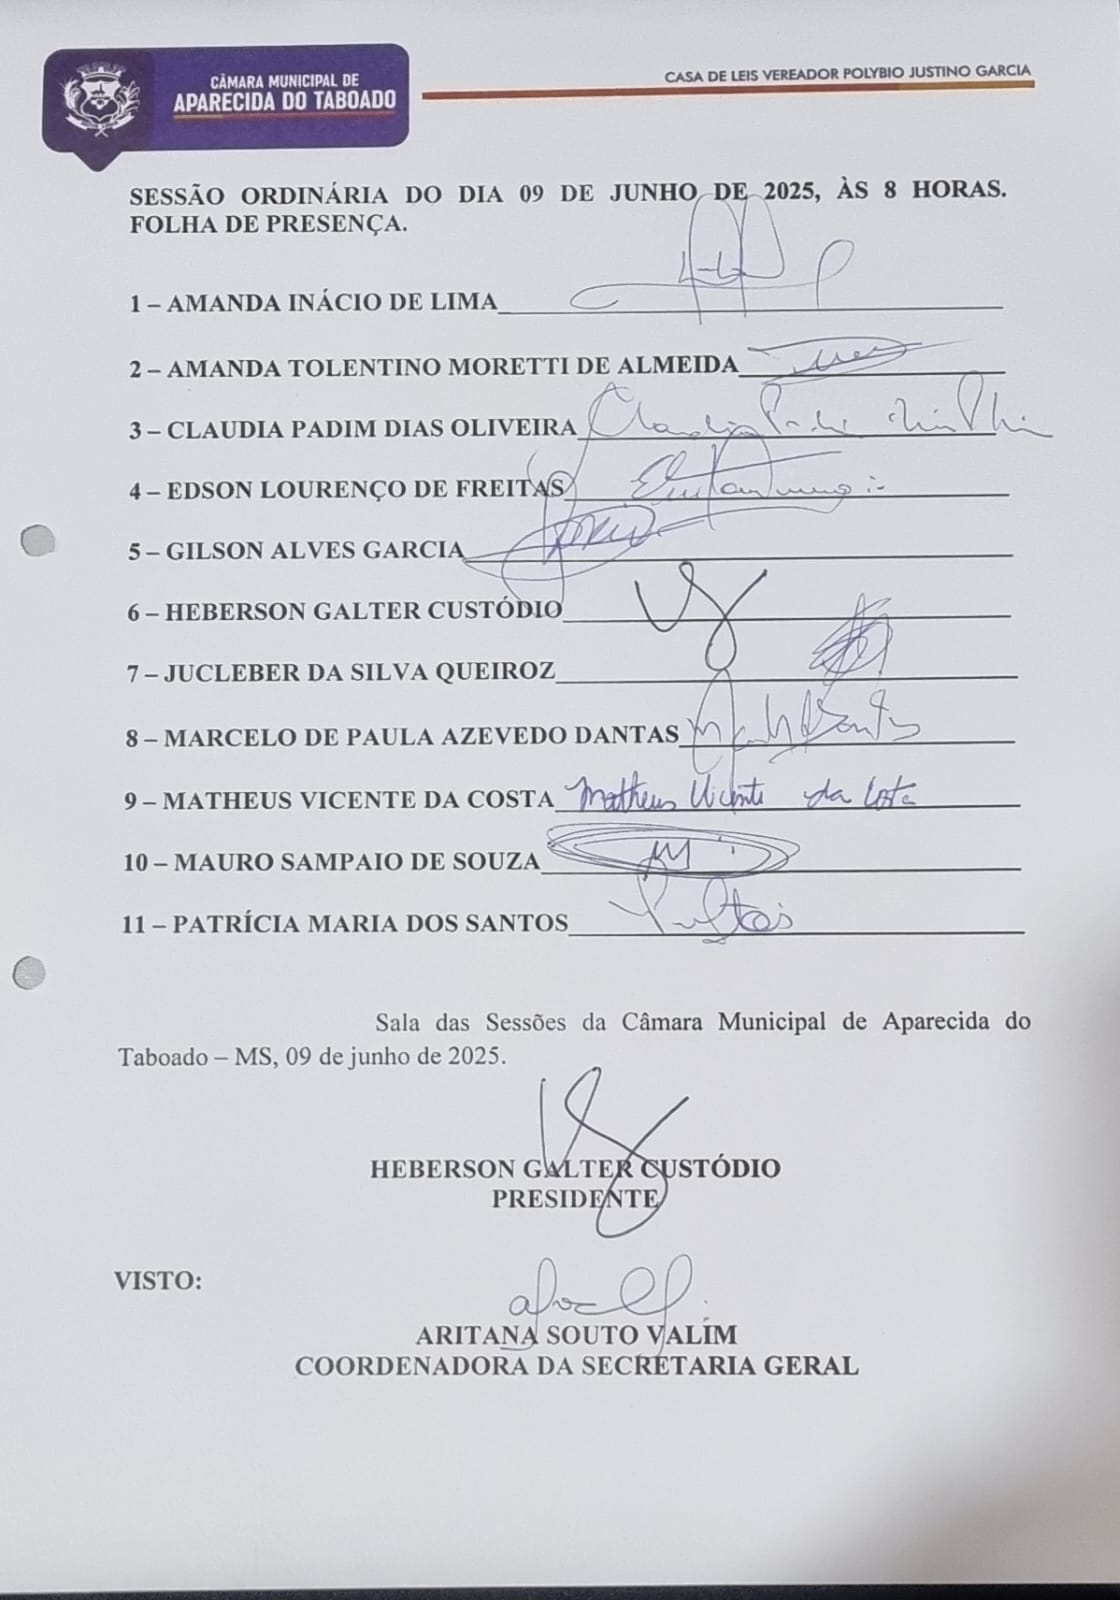 CÂMARA MUNICIPAL DE
APARECIDA DO TABOADO
CASA DE LEIS VEREADOR POLYBIO JUSTINO GARCIA
SESSÃO ORDINÁRIA DO DIA 09 DE JUNHO DE 2025, ÀS 8 HORAS.
FOLHA DE PRESENÇA.
1 – AMANDA INÁCIO DE LIMA
2 – AMANDA TOLENTINO MORETTI DE ALMEIDA
3 – CLAUDIA PADIM DIAS OLIVEIRA
4 – EDSON LOURENÇO DE FREITAS
5 – GILSON ALVES GARCIA
6 – HEBERSON GALTER CUSTÓDIO
7 – JUCLEBER DA SILVA QUEIROZ
8 – MARCELO DE PAULA AZEVEDO DANTAS
9 – MATHEUS VICENTE DA COSTA Matheus Vicente da Costa
10 – MAURO SAMPAIO DE SOUZA
11 – PATRÍCIA MARIA DOS SANTOS
Sala das Sessões da Câmara Municipal de Aparecida do
Taboado – MS, 09 de junho de 2025.
HEBERSON GALTER CUSTÓDIO
PRESIDENTE
VISTO:
ARITANA SOUTO VALIM
COORDENADORA DA SECRETARIA GERAL